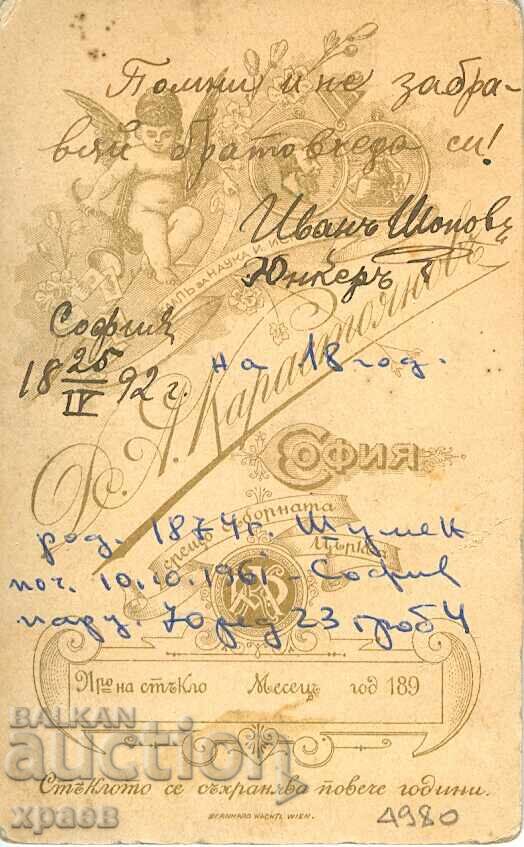 Помни и не забра-
вяй братовчеда си!
Иванъ Шоповъ
Юнкеръ
София
18 25/IV 92 г. на 18 год.
ЗА НАУКА И
Д. А. Карастояновъ
София
срещу съборната църква
род. 1874 г.
поч. 10.10.1961 - София
парц. 70 ред 23 гроб 4
№ на стъкло Месецъ год 189
Стъклото се съхранява повече години.
BERNHARD WACHTL WIEN.
4980
BALKAN
auction
храев